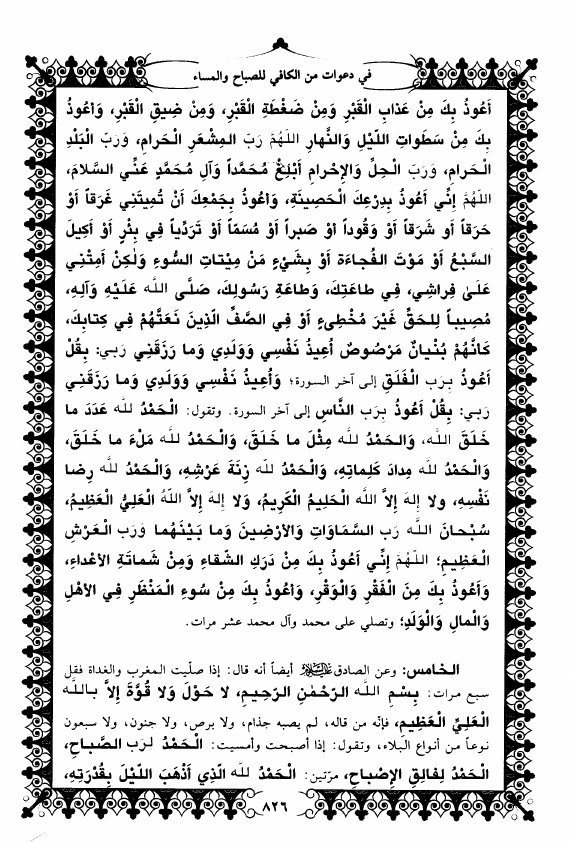 في دعوات من الكافي للصباح والمساء
أَعُوذُ بِكَ مِنْ عَذابِ الْقَبْرِ وَمِنْ ضَغْطَةِ الْقَبْرِ، وَمِنْ ضِيقِ الْقَبْرِ، وَأَعُوذُ
بِكَ مِنْ سَطَواتِ اللَّيْلِ وَالنَّهارِ اللهُمَّ رَبَّ المِشْعَرِ الْحَرامِ، وَرَبَّ الْبَلَدِ
الْحَرامِ، وَرَبَّ الْحِلِّ وَالإِحْرامِ أَبْلِغْ مُحَمَّداً وَآلِ مُحَمَّدٍ عَنِّي السَّلامَ،
اللهُمَّ إِنِّي أَعُوذُ بِدِرْعِكَ الْحَصِينَةِ، وَأَعُوذُ بِجَمْعِكَ أَنْ تُمِيتَنِي غَرَقاً أَوْ
حَرَقاً أو شَرَقاً أَوْ وَقُوداً أَوْ صَبراً أَوْ مُسَمّاً أَوْ تَرَدِّياً فِي بِئْرٍ أَوْ أَكِيلَ
السَّبُعِ أَوْ مَوْتَ الفُجاءَة أَوْ بِشَيْءٍ مَنْ مِيْتاتِ السُّوءِ وَلٰكِنْ أَمِتْنِي
عَلَىٰ فِراشِي، فِي طاعَتِكَ، وَطاعَةِ رَسُولِكَ، صَلَّى الله عَلَيْهِ وَآلِهِ،
مُصِيباً لِلحَقِّ غَيْرَ مُخْطِىءٍ أَوْ فِي الصَّفِّ الَّذِينَ نَعَتَّهُمْ فِي كِتابِكَ،
كَأَنَّهُمْ بُنْيانٌ مَرْصُوصٌ أُعِيذُ نَفْسِي وَوَلَدِي وَما رَزَقَنِي رَبي: بِقُلْ
أَعُوذُ بِرَب الْفَلَقِ إلى آخر السورة؛ وَأُعِيذُ نَفْسِي وَوَلَدِي وَما رَزَقَنِي
رَبي: بِقُلْ أَعُوذُ بِرَب النَّاسِ إلى آخر السورة. وتقول: الْحَمْدُ لله عَدَدَ ما
خَلَقَ الله، وَالحَمْدُ لله مِثْلَ ما خَلَقَ، وَالْحَمْدُ لله مَلْءَ ما خَلَقَ،
وَالْحَمْدُ لله مِدادَ كَلِماتِهِ، وَالْحَمْدُ لله زِنَةَ عَرْشِهِ، وَالْحَمْدُ لله رِضا
نَفْسِهِ، ولا إلهَ إلاَّ الله الْحَلِيمُ الْكَرِيمُ، وَلا إلهَ إلاَّ اللهُ الْعَلِيُّ الْعَظِيمُ،
سُبْحَانَ الله رَب السَّمَاوَاتِ وَالأرْضِينَ وَما بَيْنَهُما وَرَب الْعَرْشِ
الْعَظِيمِ؛ اللهُمَّ إِنِّي أَعُوذُ بِكَ مِنْ دَرَكِ الشَّقاءِ وَمِنْ شَماتَةِ الأَعْداءِ،
وَأَعُوذُ بِكَ مِنَ الْفَقْرِ وَالْوَقْرِ، وَأَعُوذُ بِكَ مِنْ سُوءِ الْمَنْظَرِ فِي الأهْلِ
وَالْمالِ وَالْوَلَدِ؛ وتصلي على محمد وآل محمد عشر مرات.
الخامس: وعن الصادق عليه السلام أيضاً أنه قال: إذا صلّيت المغرب والغداة فقل
سبع مرات: بِسْمِ الله الرَّحْمٰنِ الرَّحِيمِ، لا حَوْلَ وَلا قُوَّةَ إِلاَّ بِالله
الْعَلِيِّ الْعَظِيمِ، فإنّه من قاله، لم يصبه جذام، ولا برص، ولا جنون، ولا سبعون
نوعاً من أنواع البلاء، وتقول: إذا أصبحت وأمسيت: الْحَمْدُ لرَب الصَّباحِ،
الْحَمْدُ لِفالِقِ الإصْباحِ، مرّتين: الْحَمْدُ لله الَّذِي أَذْهَبَ اللَّيْلَ بِقُدْرَتِهِ،
٨٢٦